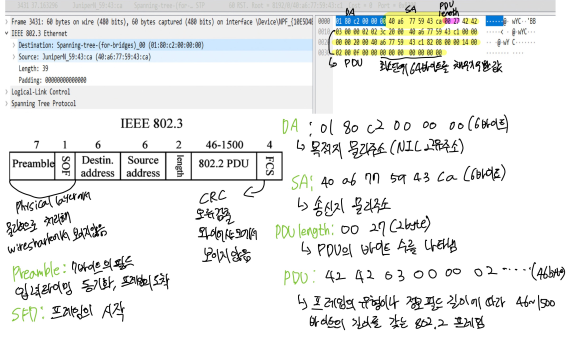 Frame 3431: 60 bytes on wire (480 bits), 60 bytes captured (480 bits) on interface \Device\NPF_{10E5D4
IEEE 802.3 Ethernet
Destination: Spanning-tree-(for-bridges)_00 (01:80:c2:00:00:00)
Source: JuniperN_59:43:ca (40:a6:77:59:43:ca)
Length: 39
Padding: 00000000000000
Logical-Link Control
Spanning Tree Protocol
DA SA PDU length
0000 01 80 c2 00 00 00 40 a6 77 59 43 ca 00 27 42 42
03 00 00 02 02 3c 20 00 40 a6 77 59 43 c1 00 00
00 00 20 00 40 a6 77 59 43 c1 82 08 00 00 14 00
02 00 0f 00 00 00 00 00 00 00 00 00
PDU 최소 64바이트를 채우기 위한 값
IEEE 802.3
7 1 6 6 2 46-1500 4
Preamble SOF Destin. address Source address length 802.2 PDU FCS
Physical layer에서
물리적으로 처리해
wireshark에서 보이지않음
CRC
오류검출
와이어샤크에서
보이지 않음
Preamble: 7바이트의 필드
동기화, 프레임의 도착
SFD: 프레임의 시작
DA : 01 80 c2 00 00 00 (6바이트)
목적지 물리주소 (NIC 고유주소)
SA: 40 a6 77 59 43 ca (6바이트)
송신지 물리주소
PDU length: 00 27 (2byte)
PDU의 바이트 수를 나타냄
PDU: 42 42 03 00 00 02 ····· (46byte)
프레임의 유형이나 정보 필드 길이에 따라 46~1500
바이트의 길이를 갖는 802.2 프레임